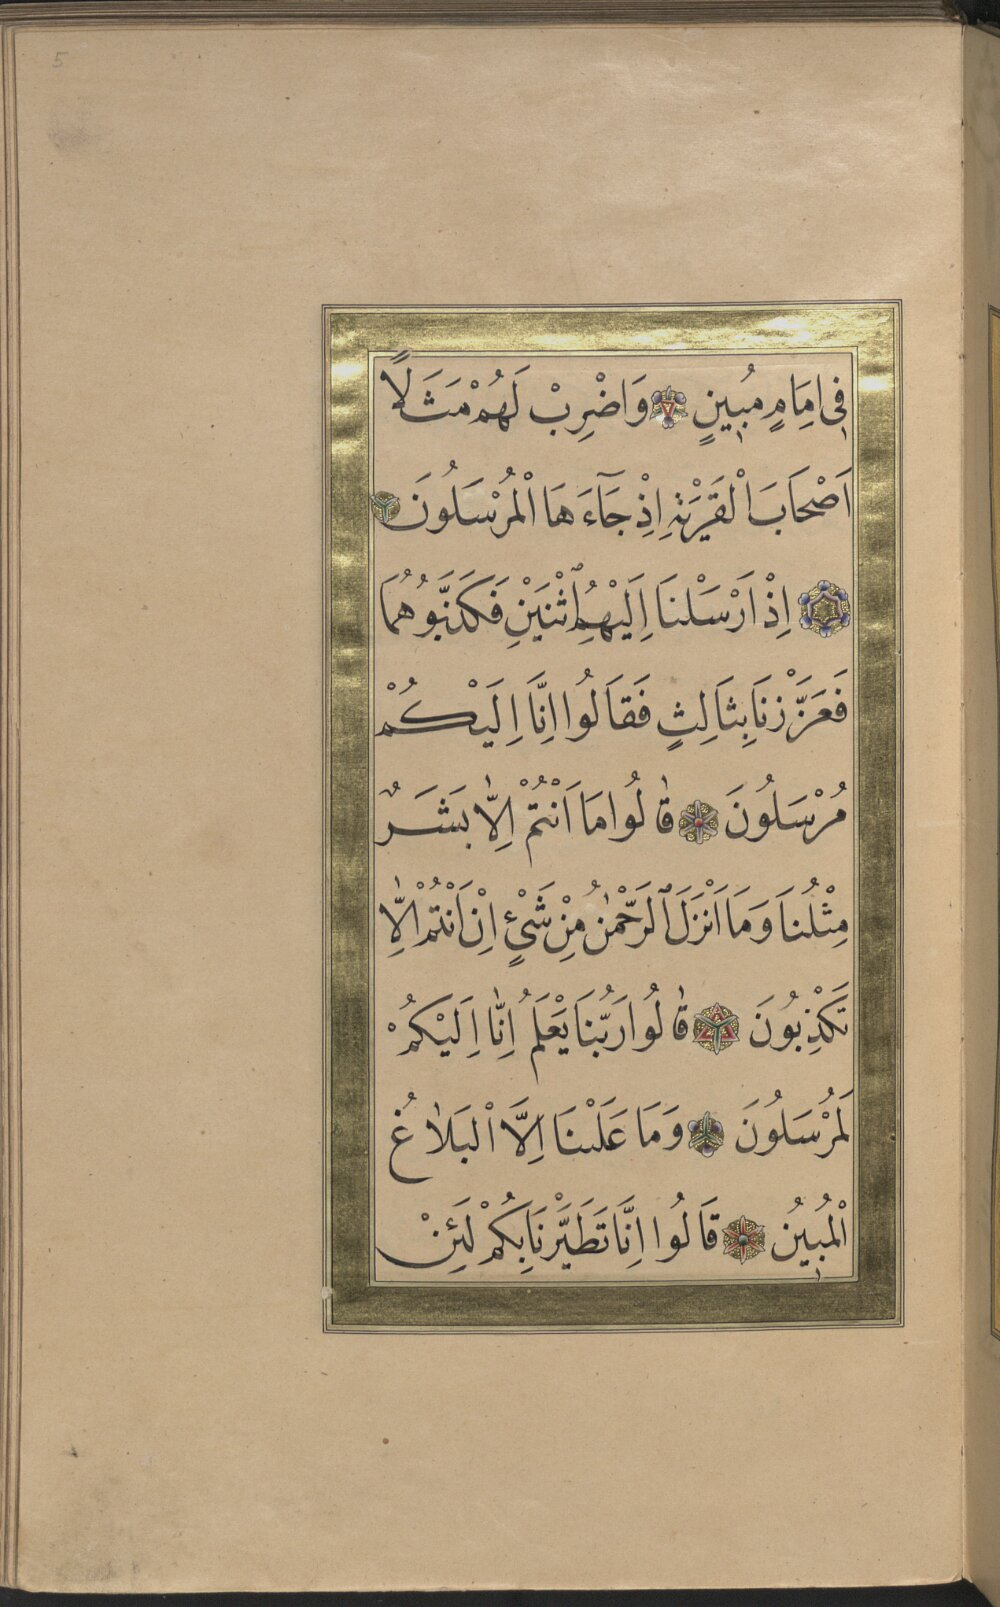 5
فِى اِمَامٍ مُبِينٍ وَاضْرِبْ لَهُمْ مَثَلًا
اَصْحَابَ الْقَرْيَةِ اِذْ جَآءَهَا الْمُرْسَلُونَ
اِذْ اَرْسَلْنَا اِلَيْهِمُ اثْنَيْنِ فَكَذَّبُوهُمَا
فَعَزَّزْنَا بِثَالِثٍ فَقَالُوا اِنَّا اِلَيْكُمْ
مُرْسَلُونَ قَالُوا مَا اَنْتُمْ اِلَّا بَشَرٌ
مِثْلُنَا وَمَا اَنْزَلَ الرَّحْمٰنُ مِنْ شَيْءٍ اِنْ اَنْتُمْ اِلَّا
تَكْذِبُونَ قَالُوا رَبُّنَا يَعْلَمُ اِنَّا اِلَيْكُمْ
لَمُرْسَلُونَ وَمَا عَلَيْنَا اِلَّا الْبَلَاغُ
الْمُبِينُ قَالُوا اِنَّا تَطَيَّرْنَا بِكُمْ لَئِنْ